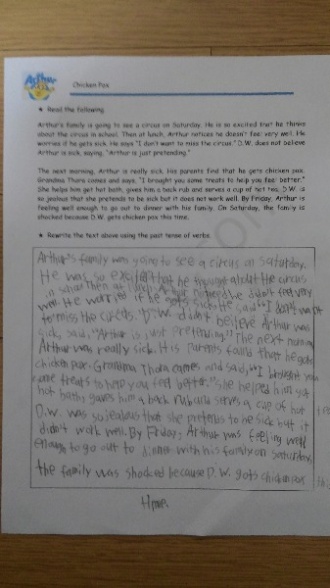 Arthur
Chicken Pox
★ Read the following
Arthur's family is going to see a circus on Saturday. He is so excited that he thinks
about the circus in school. Then at lunch, Arthur notices he doesn't feel very well. He
worries if he gets sick. He says "I don't want to miss the circus." D.W. does not believe
Arthur is sick, saying, "Arthur is just pretending."
The next morning, Arthur is really sick. His parents find that he gets chicken pox.
Grandma Thora comes and says, "I brought you some treats to help you feel better."
She helps him get hot bath, gives him a back rub and serves a cup of hot tea. D.W. is
so jealous that she pretends to be sick but it does not work well. By Friday, Arthur is
feeling well enough to go out to dinner with his family. On Saturday, the family is
shocked because D.W. gets chicken pox this time.
★ Rewrite the text above using the past tense of verbs
Arthur's family was going to see a circus on Saturday.
He was so excited that he thought about the circus
in school. Then at lunch, Arthur noticed he didn't feel very
well. He worried if he gets sick. He said "I don't want
to miss the circus." D.W. didn't believe Arthur was
sick, said, "Arthur is just pretending." The next morning
Arthur was really sick. It is parents found that he gets
chicken pox. Grandma Thora comes and said, "I brought you
some treats to help you feel better." She helped him get
hot bath, gives him a back rub and serves a cup of hot
D.W. was so jealous that she pretends to be sick but it
didn't work well. By Friday, Arthur was feeling well
enough to go out to dinner with his family on Saturday,
the family was shocked because D.W. gots chicken pox